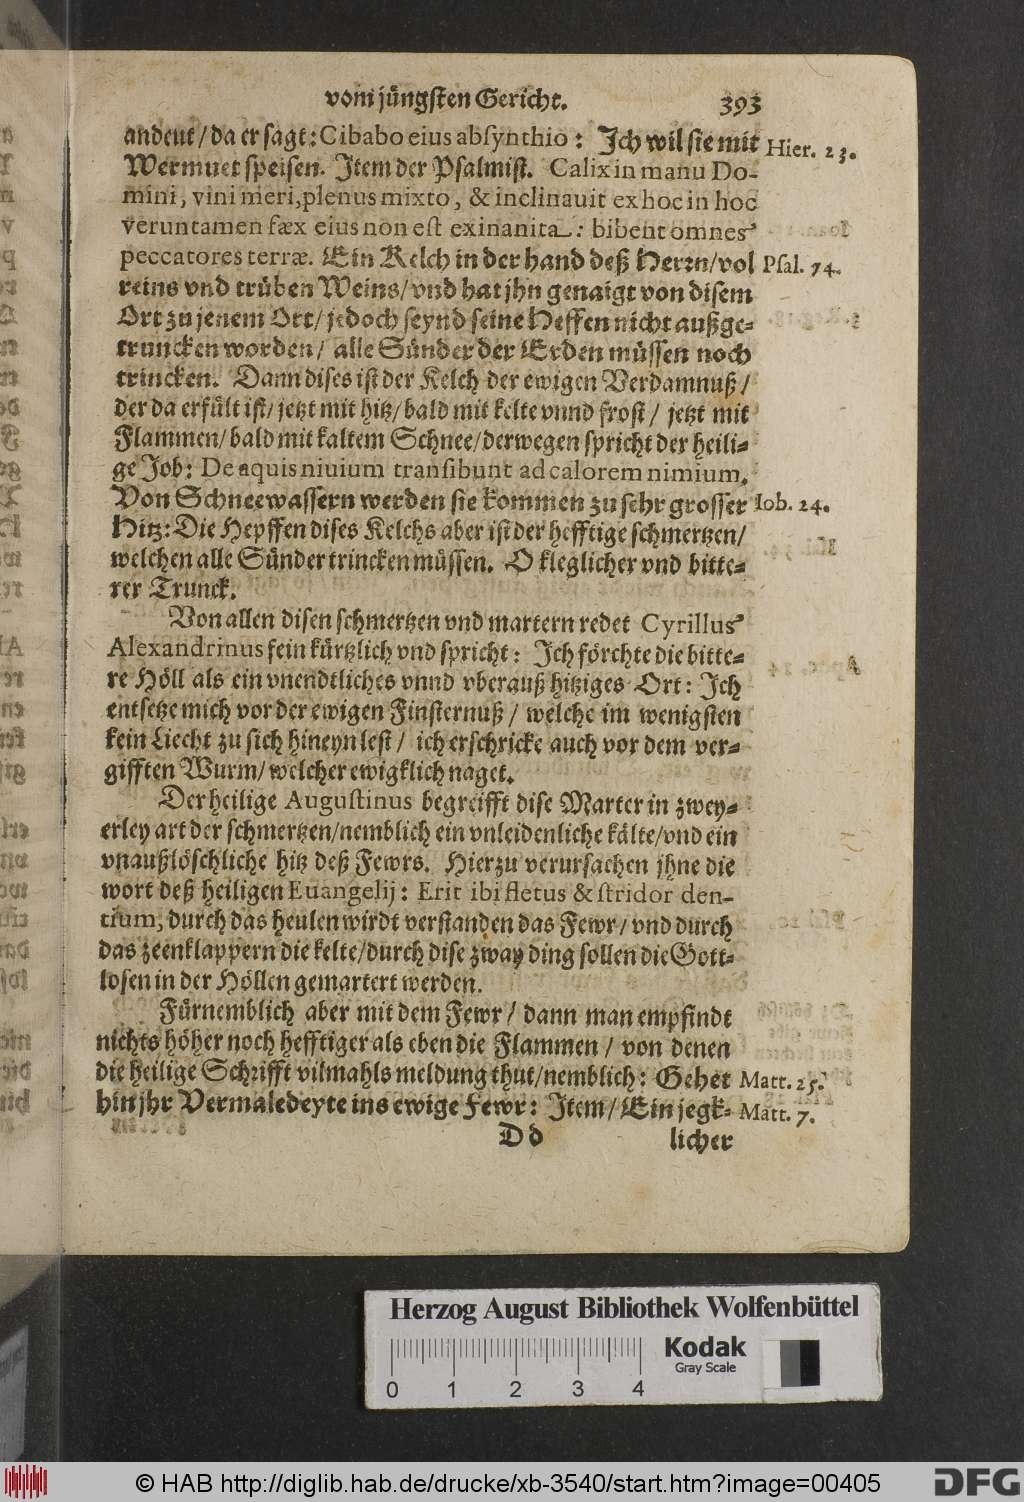 vom jüngsten Gericht. 393
andeut / da er sagt: Cibabo eius absynthio: Jch wil sie mit Hier. 23.
Wermuet speisen. Jtem der Psalmist. Calix in manu Do-
mini, vini meri, plenus mixto, & inclinauit ex hoc in hoc
veruntamen fæx eius non est exinanita: bibent omnes
peccatores terræ. Ein Kelch in der hand deß Herrn / vol Psal. 74.
reins vnd trüben Weins / vnd hat jhn genaigt von disem
Ort zu jenem Ort / jedoch seynd seine Heffen nicht außge-
truncken worden / alle Sünder der Erden müssen noch
trincken. Dann dises ist der Kelch der ewigen Verdamnuß /
der da erfült ist / jetzt mit hitz / bald mit kelte vnnd frost / jetzt mit
Flammen / bald mit kaltem Schnee / derwegen spricht der heili-
ge Job: De aquis niuium transibunt ad calorem nimium.
Von Schneewassern werden sie kommen zu sehr grosser Iob. 24.
Hitz: Die Hepffen dises Kelchs aber ist der hefftige schmertzen /
welchen alle Sünder trincken müssen. O kleglicher vnd bitte-
rer Trunck.
Von allen disen schmertzen vnd martern redet Cyrillus
Alexandrinus fein kürtzlich vnd spricht: Jch förchte die bitte-
re Höll als ein vnendtliches vnnd vberauß hitziges Ort: Jch
entsetze mich vor der ewigen Finsternuß / welche im wenigsten
kein Liecht zu sich hineyn lest / ich erschricke auch vor dem ver-
gifften Wurm / welcher ewigklich naget.
Der heilige Augustinus begreifft dise Marter in zwey-
erley art der schmertzen / nemblich ein vnleidenliche kälte / vnd ein
vnaußlöschliche hitz deß Fewrs. Hierzu verursachen jhne die
wort deß heiligen Euangelij: Erit ibi fletus & stridor den-
tium, durch das heulen wirdt verstanden das Fewr / vnd durch
das zeenklappern die kelte / durch dise zway ding sollen die Gott-
losen in der Höllen gemartert werden.
Fürnemblich aber mit dem Fewr / dann man empfindt
nichts höher noch hefftiger als eben die Flammen / von denen
die heilige Schrifft vilmahls meldung thut / nemblich: Gehet Matt. 25.
hin jhr Vermaledeyte ins ewige Fewr: Jtem / Ein jegk- Matt. 7.
Dd licher
Herzog August Bibliothek Wolfenbüttel
Kodak
Gray Scale
0 1 2 3 4
© HAB http://diglib.hab.de/drucke/xb-3540/start.htm?image=00405
DFG